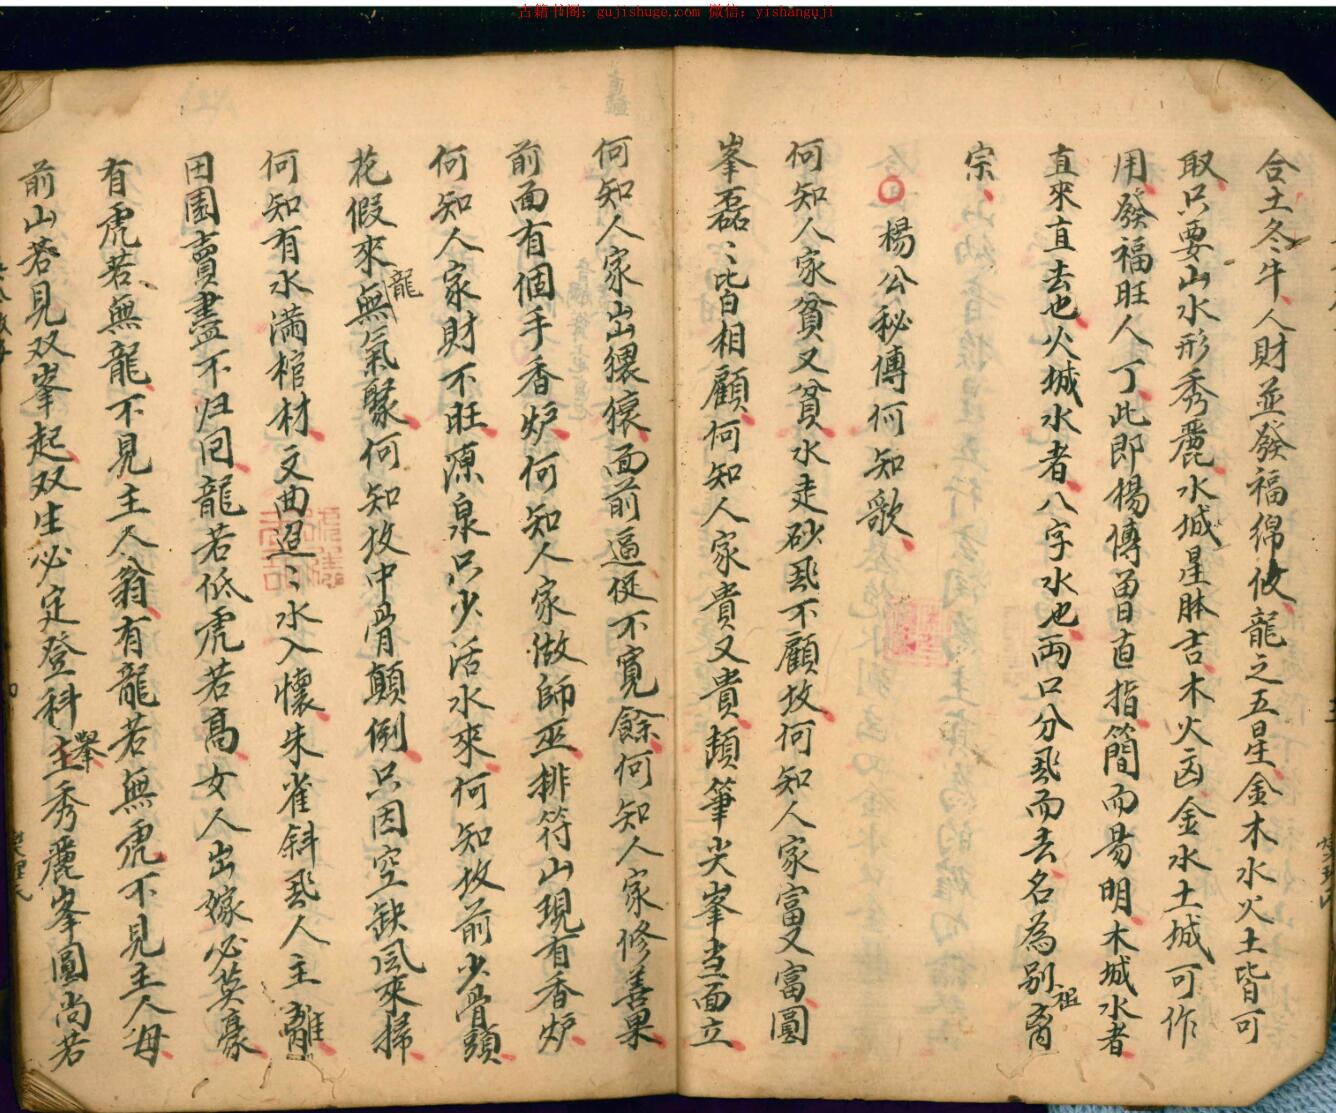 古籍书阁：gujishuge.com 微信：yishanguji
合土冬牛人財並發福綿攸龍之五星金木水火土皆可
取只要山水形秀麗水城星体吉木火凶金水土城可作
用發福旺人丁此即楊傳曾直指簡而易明木城水者
直來直去也火城水者八字水也両口分飛而去名為别祖离
宗
楊公秘傳何知歌
何知人家貧又貧水走砂飛不顧坟何知人家富又富圓
峯磊〻皆相顧何知人家貴又貴類筆尖峯当面立
何知人家出猥猿面前逼促不寬餘何知人家修善果
前面有個手香炉何知人家做師巫排符山現有香炉
何知人家財不旺源泉只少活水來何知坟前少骨頭
花假來龍無氣聚何知坟中骨顛倒只因空缺风來掃
何知有水满棺材文曲迢〻水入懷朱雀斜飛人主離
田園賣盡不归回龍若低虎若高女人出嫁必英豪
有虎若無龍不見主人翁有龍若無虎不見主人母
前山若見双峯起双生必定登科舉主秀麗峯圓尚若